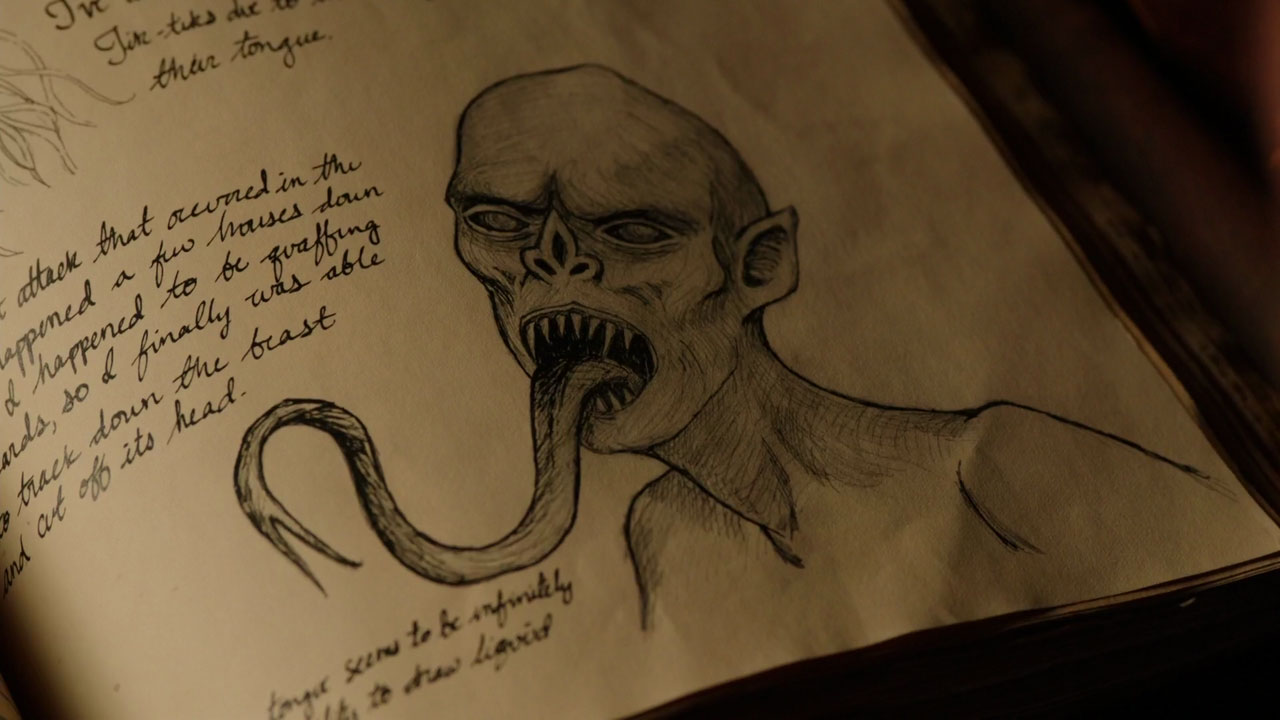 I've
Tik-tiks due to
their tongue.
attack that occured in the
happened a few houses down
I happened to be quaffing
so I finally was able
to track down the beast
and cut off its head.
tongue seems to be infinitely
to draw liquid